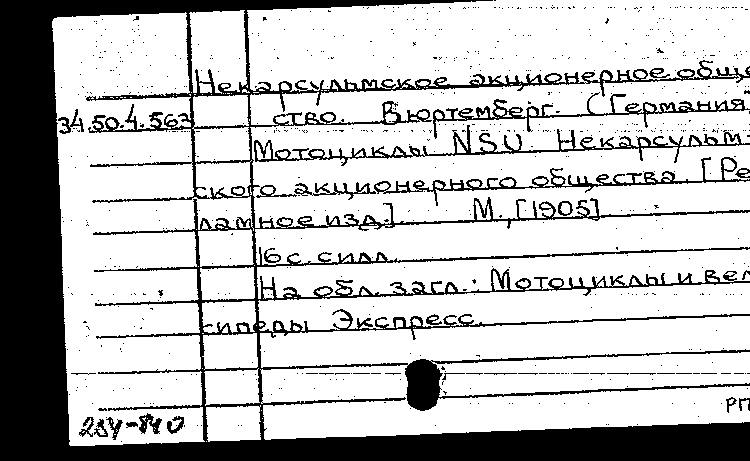 Некарсульмское акционерное обще
34.50.4.563 ство. Вюртемберг. (Германия)
Мотоциклы NSU Некарсульм-
ского акционерного общества. [Ре
ламное изд.] М., [1905]
16 с. с илл.
На обл. загл.: Мотоциклы и вел
сипеды Экспресс.
РП